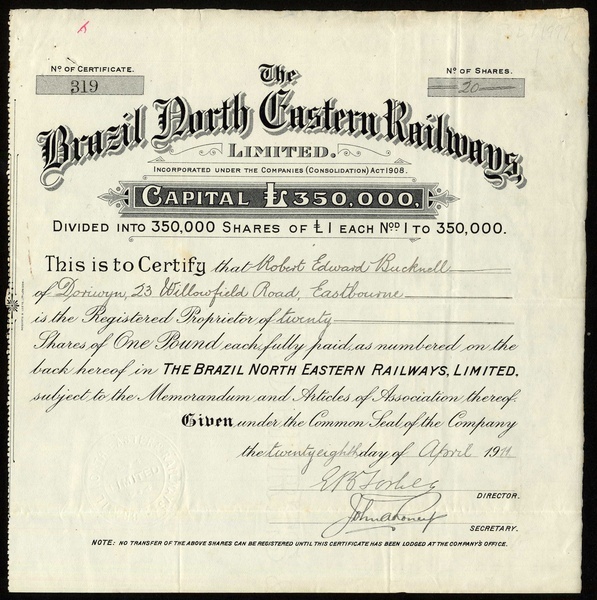 Nº OF CERTIFICATE.
319
Nº OF SHARES.
20
The
Brazil North Eastern Railways,
LIMITED.
INCORPORATED UNDER THE COMPANIES (CONSOLIDATION) ACT 1908.
CAPITAL £350,000,
DIVIDED INTO 350,000 SHARES OF £1 EACH NOD 1 TO 350,000.
This is to Certify that Robert Edward Bucknell
of Doriwyn, 23 Willowfield Road, Eastbourne
is the Registered Proprietor of twenty
Shares of One Pound each, fully paid, as numbered on the
back hereof in THE BRAZIL NORTH EASTERN RAILWAYS, LIMITED,
subject to the Memorandum and Articles of Association thereof.
Given under the Common Seal of the Company
the twenty eighth day of April 1911
DIRECTOR.
SECRETARY.
NOTE: NO TRANSFER OF THE ABOVE SHARES CAN BE REGISTERED UNTIL THIS CERTIFICATE HAS BEEN LODGED AT THE COMPANY'S OFFICE.